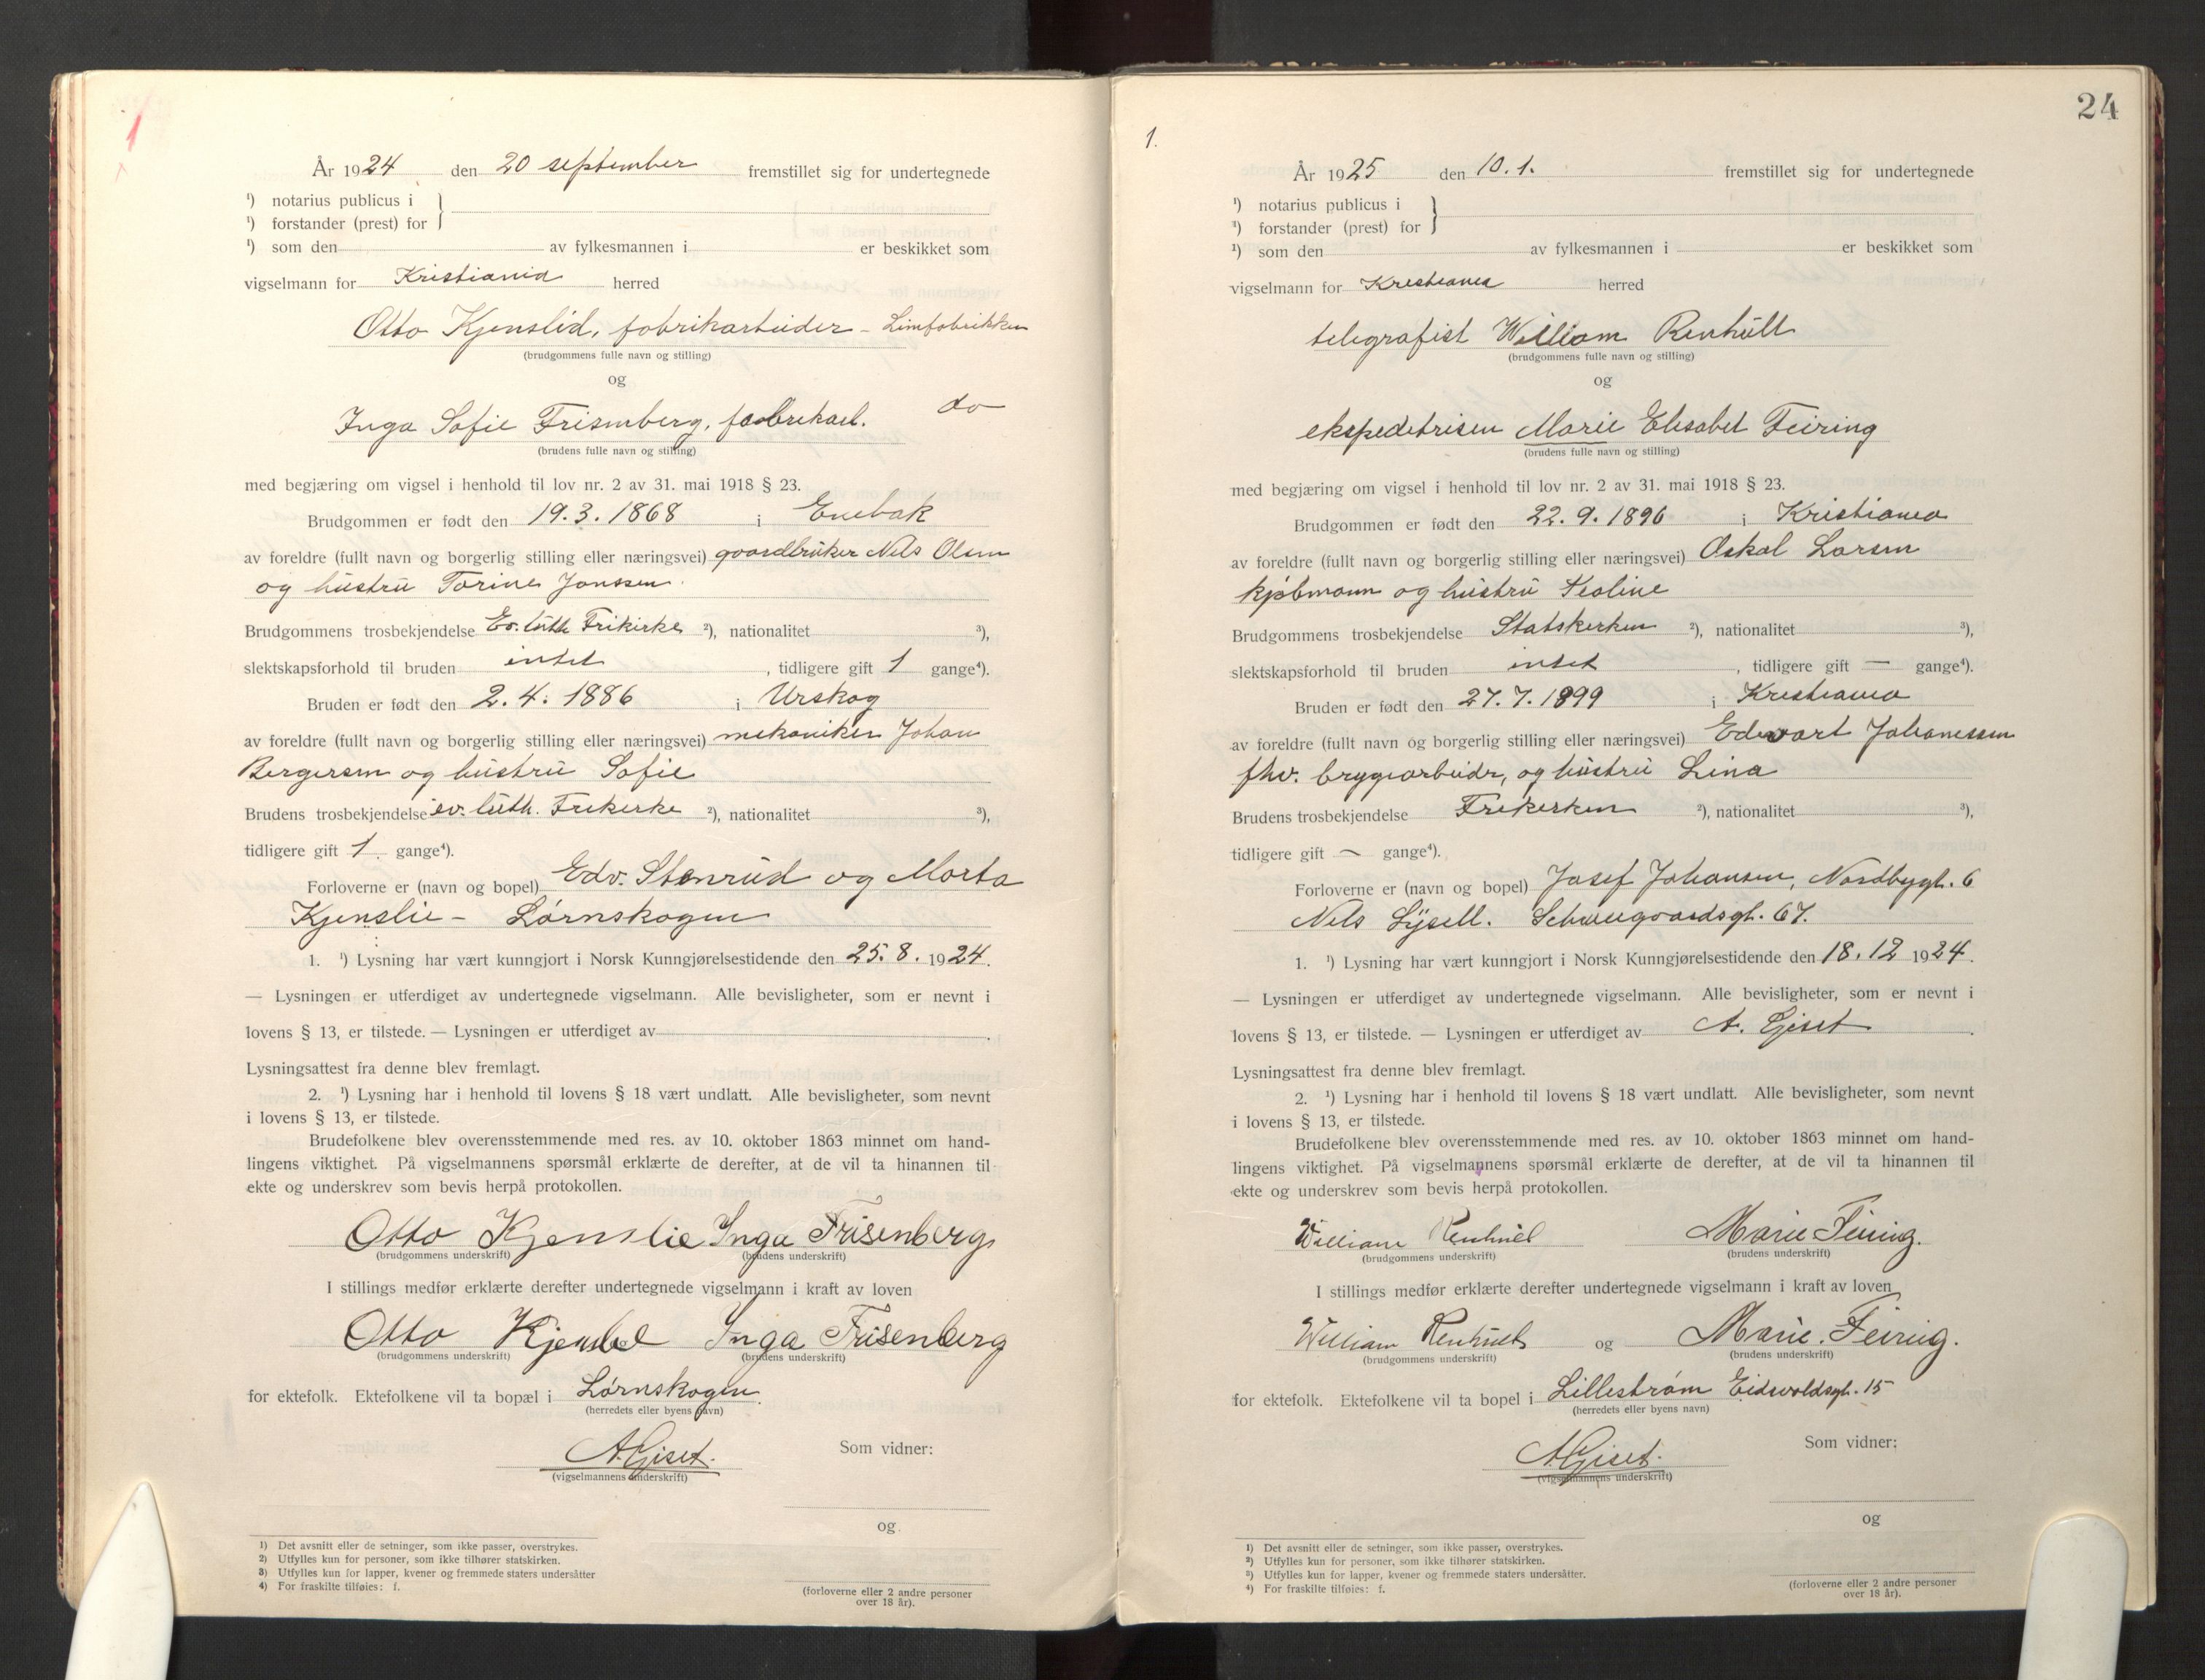 1
År 1924 den 20 september fremstillet sig for undertegnede
¹) notarius publicus i }
¹) forstander (prest) for
¹) som den av fylkesmannen i er beskikket som
vigselmann for Kristiania herred
Otto Kjenslid, fabrikarbeider - Limfabrikken
(brudgommens fulle navn og stilling)
og
Inga Sofie Frisenberg, fabrikarb. do
(brudens fulle navn og stilling)
med begjæring om vigsel i henhold til lov nr. 2 av 31. mai 1918 § 23.
Brudgommen er født den 19.3.1868 i Enebak
av foreldre (fullt navn og borgerlig stilling eller næringsvei) gaardbruker Nils Olsen
og hustru Torine Jonssen
Brudgommens trosbekjendelse Ev. luth Frikirke ²), nationalitet ³),
slektskapsforhold til bruden intet , tidligere gift 1 gange⁴).
Bruden er født den 2.4.1886 i Urskog
av foreldre (fullt navn og borgerlig stilling eller næringsvei) mekaniker Johan
Bergersen og hustru Sofie
Brudens trosbekjendelse ev. luth. Frikirke ²), nationalitet ³),
tidligere gift 1 gange⁴).
Forloverne er (navn og bopel) Edv. Stenrud og Marta
Kjenslie - Lørnskogen
1. ¹) Lysning har vært kunngjort i Norsk Kunngjørelsestidende den 25.8. 1924.
— Lysningen er utferdiget av undertegnede vigselmann. Alle bevisligheter, som er nevnt i
lovens § 13, er tilstede. — Lysningen er utferdiget av .
Lysningsattest fra denne blev fremlagt.
2. ¹) Lysning har i henhold til lovens § 18 vært undlatt. Alle bevisligheter, som nevnt
i lovens § 13, er tilstede.
Brudefolkene blev overensstemmende med res. av 10. oktober 1863 minnet om hand-
lingens viktighet. På vigselmannens spørsmål erklærte de derefter, at de vil ta hinannen til
ekte og underskrev som bevis herpå protokollen.
Otto Kjenslie Inga Frisenberg
(brudgommens underskrift) (brudens underskrift)
I stillings medfør erklærte derefter undertegnede vigselmann i kraft av loven
Otto Inga Frisenberg
(brudgommens underskrift) (brudens underskrift)
for ektefolk. Ektefolkene vil ta bopæl i Lørnskogen.
(herredets eller byens navn)
A. Gjset. Som vidner:
(vigselmannens underskrift)
og
1) Det avsnitt eller de setninger, som ikke passer, overstrykes.
2) Utfylles kun for personer, som ikke tilhører statskirken.
3) Utfylles kun for lapper, kvener og fremmede staters undersåtter
4) For fraskilte tilføies: f.
(forloverne eller 2 andre personer
over 18 år).
24
1.
År 1925 den 10.1. fremstillet sig for undertegnede
¹) notarius publicus i }
¹) forstander (prest) for
¹) som den av fylkesmannen i er beskikket som
vigselmann for Kristiania herred
telegrafist William Renhult
(brudgommens fulle navn og stilling)
og
ekspeditrisen Marie Elisabet Feiring
(brudens fulle navn og stilling)
med begjæring om vigsel i henhold til lov nr. 2 av 31. mai 1918 § 23.
Brudgommen er født den 22.9.1896 i Kristiania
av foreldre (fullt navn og borgerlig stilling eller næringsvei) Oskal Larsen
kjøbmann og hustru
Brudgommens trosbekjendelse Statskirken ²), nationalitet ³),
slektskapsforhold til bruden intet , tidligere gift — gange⁴).
Bruden er født den 27.7.1899 i Kristiania
av foreldre (fullt navn og borgerlig stilling eller næringsvei) Edvart Johanessen
fhv. brygearbeider, og hustru Lina
Brudens trosbekjendelse Frikirken ²), nationalitet ³),
tidligere gift — gange⁴).
Forloverne er (navn og bopel) Josef Johansen, Nordbygt. 6
Nils Lysell. Schweigaardsgt. 67.
1. ¹) Lysning har vært kunngjort i Norsk Kunngjørelsestidende den 18.12 1924.
— Lysningen er utferdiget av undertegnede vigselmann. Alle bevisligheter, som er nevnt i
lovens § 13, er tilstede. — Lysningen er utferdiget av A. Gjset .
Lysningsattest fra denne blev fremlagt.
2. ¹) Lysning har i henhold til lovens § 18 vært undlatt. Alle bevisligheter, som nevnt
i lovens § 13, er tilstede.
Brudefolkene blev overensstemmende med res. av 10. oktober 1863 minnet om hand-
lingens viktighet. På vigselmannens spørsmål erklærte de derefter, at de vil ta hinannen til
ekte og underskrev som bevis herpå protokollen.
William Renhult Marie Feiring.
(brudgommens underskrift) (brudens underskrift)
I stillings medfør erklærte derefter undertegnede vigselmann i kraft av loven
William Renhult og Marie Feiring.
(brudgommens underskrift) (brudens underskrift)
for ektefolk. Ektefolkene vil ta bopel i Lillestrøm Eidsvoldsgt. 15
(herredets eller byens navn)
A. Gjset. Som vidner:
(vigselmannens underskrift)
og
¹) Det avsnitt eller de setninger, som ikke passer, overstrykes.
²) Utfylles kun for personer, som ikke tilhører statskirken.
³) Utfylles kun for lapper, kvener og fremmede staters undersåtter.
⁴) For fraskilte tilføies: f.
(forloverne eller 2 andre personer
over 18 år).